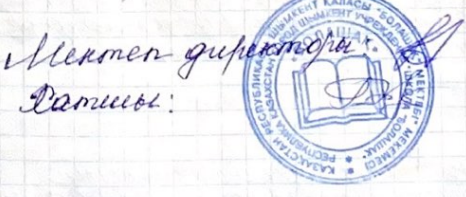 Мектеп директоры:
Хатшы:
ҚАЗАҚСТАН РЕСПУБЛИКАСЫ ШЫМКЕНТ ҚАЛАСЫ "БОЛАШАҚ" МЕКТЕБІ" МЕКЕМЕСІ
РЕСПУБЛИКА КАЗАХСТАН ГОРОД ШЫМКЕНТ УЧРЕЖДЕНИЕ "БОЛАШАК"